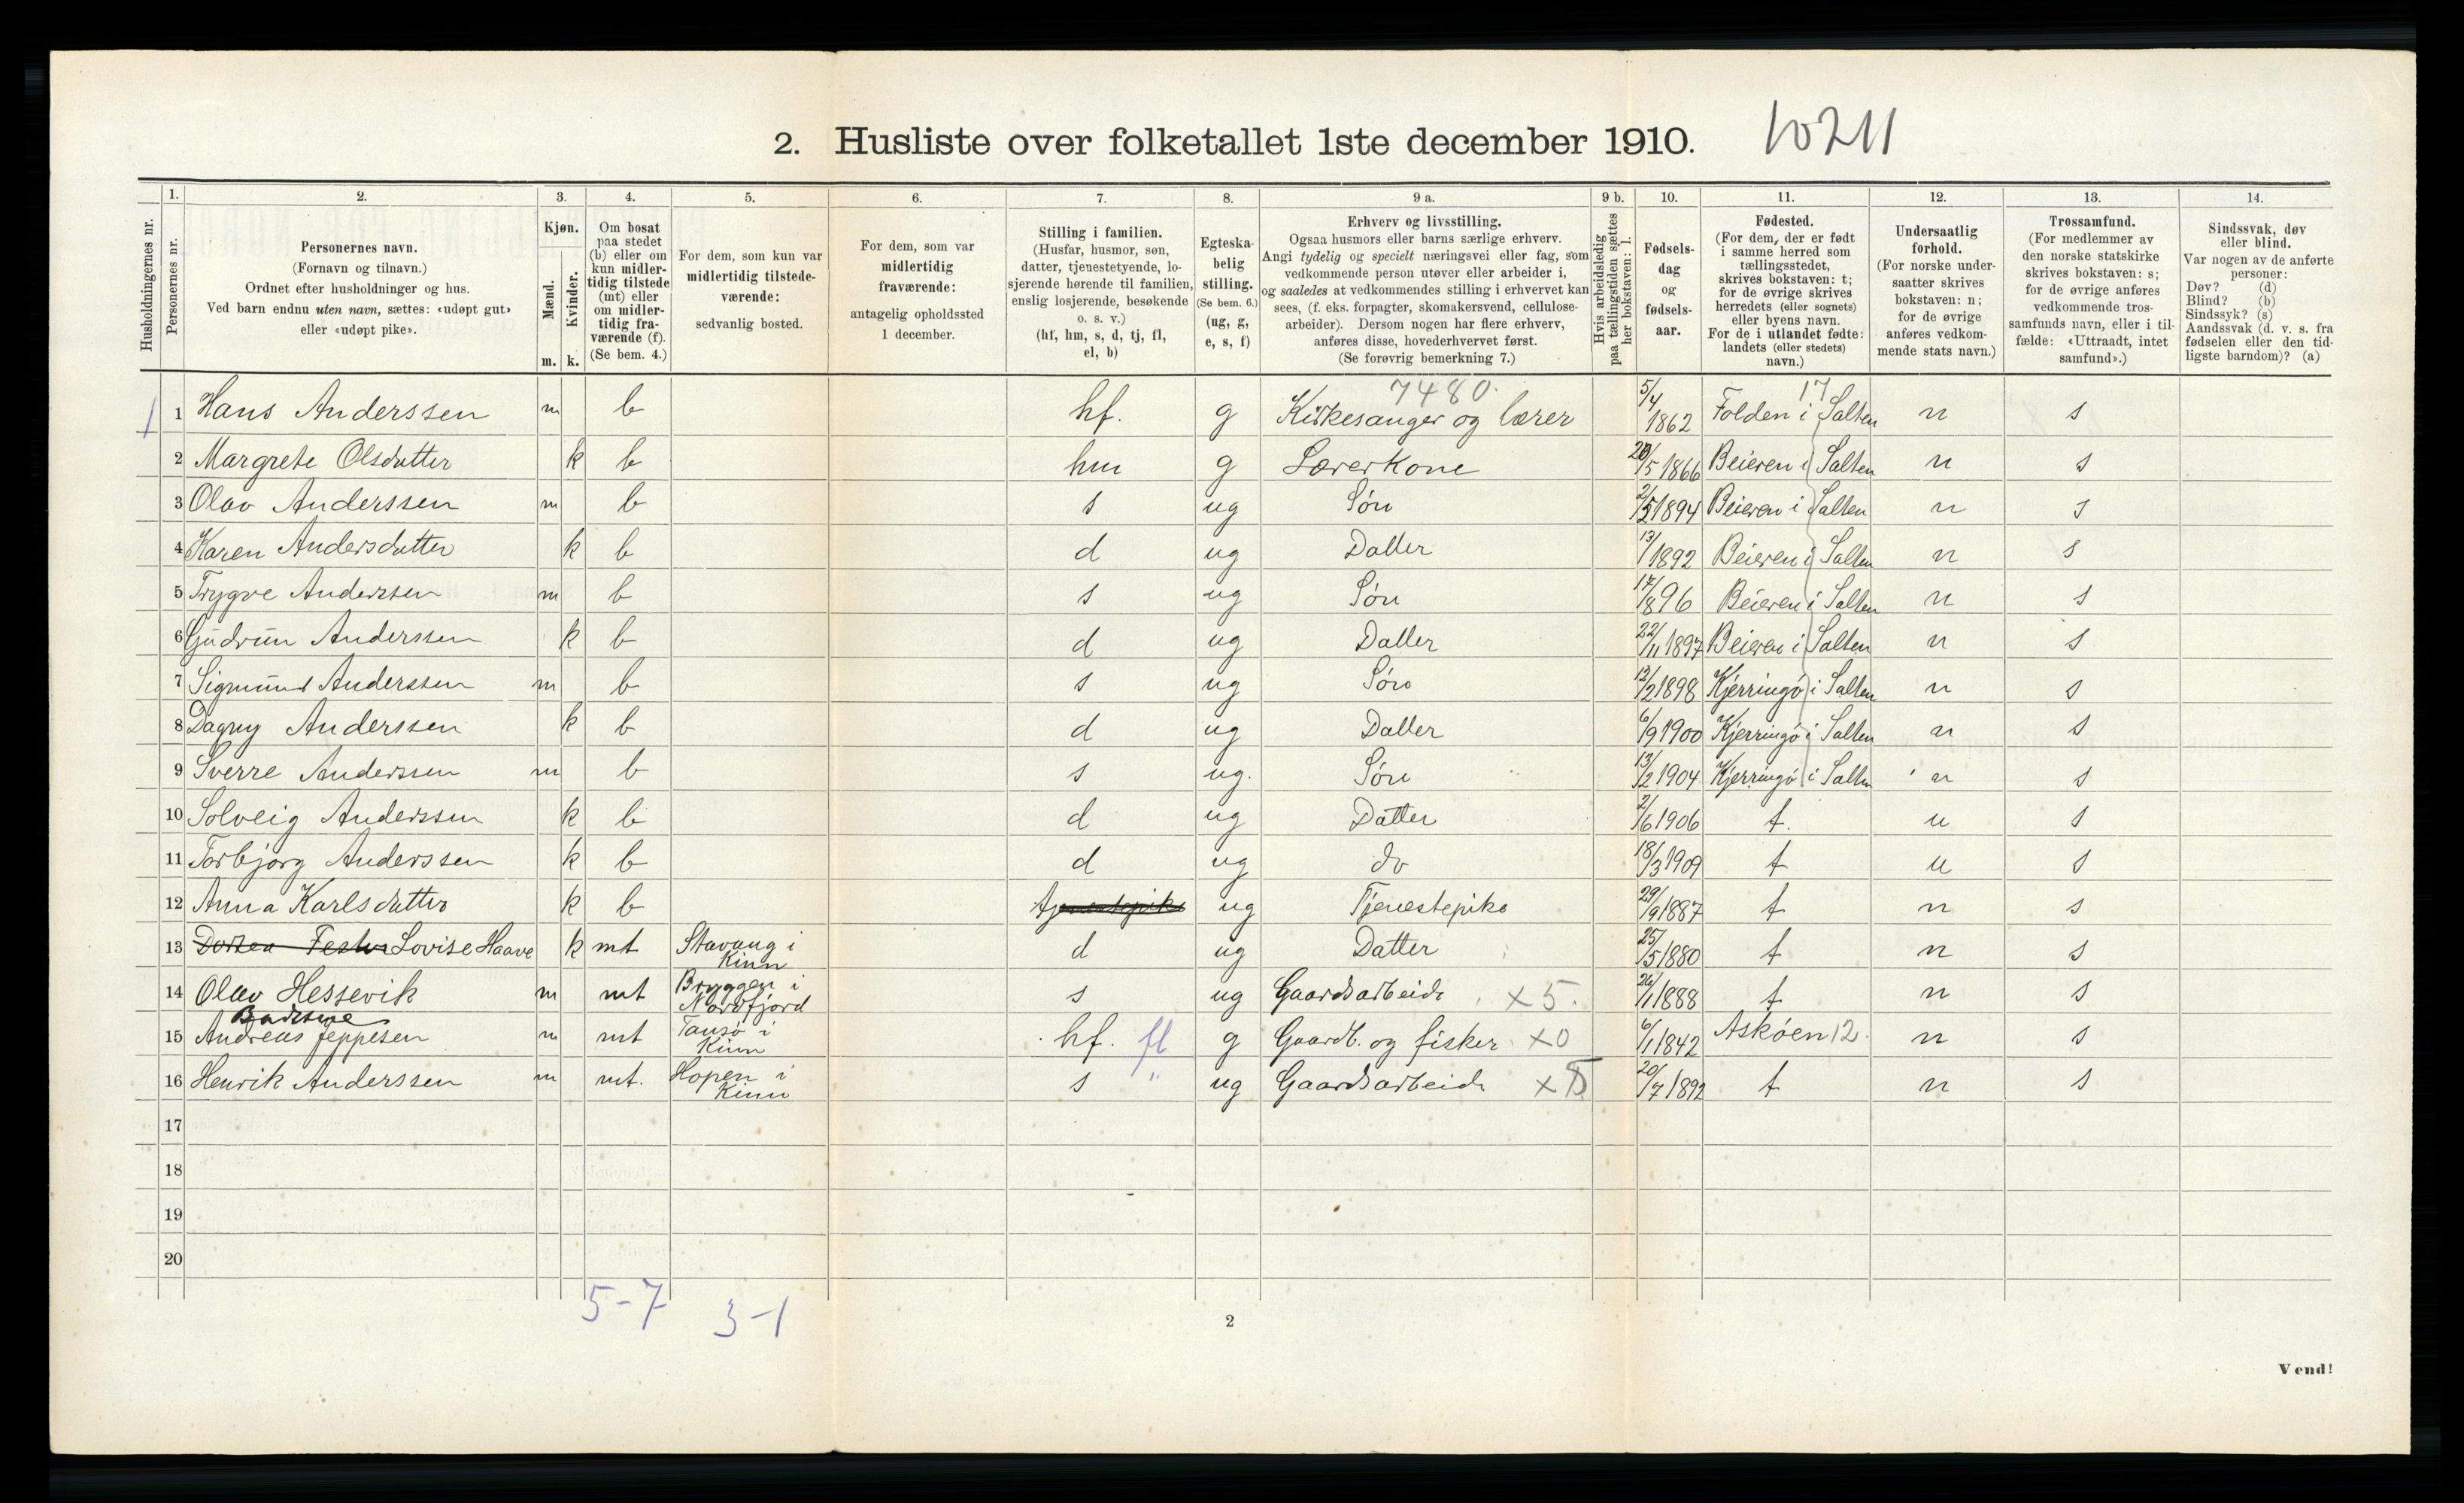 2. Husliste over folketallet 1ste december 1910. 10211
1. 2. 3. 4. 5. 6. 7. 8. 9 a. 9 b. 10. 11. 12. 13. 14.
Husholdningernes nr.
Personernes nr.
Personernes navn.
(Fornavn og tilnavn.)
Ordnet efter husholdninger og hus.
Ved barn endnu uten navn, sættes: «udøpt gut»
eller «udøpt pike».
Kjøn.
Mænd.
Kvinder.
m. k.
Om bosat
paa stedet
(b) eller om
kun midler-
tidig tilstede
(mt) eller
om midler-
tidig fra-
værende (f).
(Se bem. 4.)
For dem, som kun var
midlertidig tilstede-
værende:
sedvanlig bosted.
For dem, som var
midlertidig
fraværende:
antagelig opholdssted
1 december.
Stilling i familien.
(Husfar, husmor, søn,
datter, tjenestetyende, lo-
sjerende hørende til familien,
enslig losjerende, besøkende
o. s. v.)
(hf, hm, s, d, tj, fl,
el, b)
Egteska-
belig
stilling.
(Se bem. 6.)
(ug, g,
e, s, f)
Erhverv og livsstilling.
Ogsaa husmors eller barns særlige erhverv.
Angi tydelig og specielt næringsvei eller fag, som
vedkommende person utøver eller arbeider i,
og saaledes at vedkommendes stilling i erhvervet kan
sees, (f. eks. forpagter, skomakersvend, cellulose-
arbeider). Dersom nogen har flere erhverv,
anføres disse, hovederhvervet først.
(Se forøvrig bemerkning 7.)
Hvis arbeidsledig
paa tællingstiden sættes
her bokstaven: l.
Fødsels-
dag
og
fødsels-
aar.
Fødested.
(For dem, der er født
i samme herred som
tællingsstedet,
skrives bokstaven: t;
for de øvrige skrives
herredets (eller sognets)
eller byens navn.
For de i utlandet fødte:
landets (eller stedets)
navn.)
Undersaatlig
forhold.
(For norske under-
saatter skrives
bokstaven: n;
for de øvrige
anføres vedkom-
mende stats navn.)
Trossamfund.
(For medlemmer av
den norske statskirke
skrives bokstaven: s;
for de øvrige anføres
vedkommende tros-
samfunds navn, eller i til-
fælde: «Uttraadt, intet
samfund».)
Sindssvak, døv
eller blind.
Var nogen av de anførte
personer:
Døv? (d)
Blind? (b)
Sindssyk? (s)
Aandssvak (d. v. s. fra
fødselen eller den tid-
ligste barndom)? (a)
7480. 17
1 1 Hans Anderssen m b hf. g Kirkesanger og lærer 5/4 1862 Folden i Salten n s
2 Margrete Olsdatter k b hm g Lærerkone /5 1866 Beieren i Salten n s
3 Olav Anderssen m b s ug Søn 1894 Beieren i Salten n s
4 Karen Andersdatter k b d ug Datter 13/ 1892 Beieren i Salten n s
5 Trygve Anderssen m b s ug Søn 17/8 96 Beieren i Salten n s
6 Gudrun Anderssen k b d ug Datter 22/11 1897 Beieren i Salten n s
7 Sigmund Anderssen m b s ug Søn 12/2 1898 Kjerringø i Salten n s
8 Dagny Anderssen k b d ug Datter 6/9 1900 Kjerringø i Salten n s
9 Sverre Anderssen m b s ug. Søn 13/2 1904 Kjerringø i Salten n s
10 Solveig Anderssen k b d ug Datter 2/6 1906 t. n s
11 Torbjørg Anderssen k b d ug do 18/3 1909 t n s
12 Anna Karlsdatter k b tjenestepike ug Tjenestepike 29/9 1887 t n s
13 Lovise Haave k mt Stavang i Kinn d ug Datter 25/5 1880 t n s
14 Olav Hessevik m mt Bryggen i Nordfjord s ug Gaardsarbeide x5. 26/1 1888 t n s
15 Andreas Jeppesen m mt i Kinn hf. fl g Gaardb. og fisker x0 6/1 1842 Askøen 12. n s
16 Henrik Anderssen m mt. Hopen i Kinn s " ug Gaardsarbeide x5 20/7 1892 t n s
17
18
19
20
5-7 3-1
2
Vend!